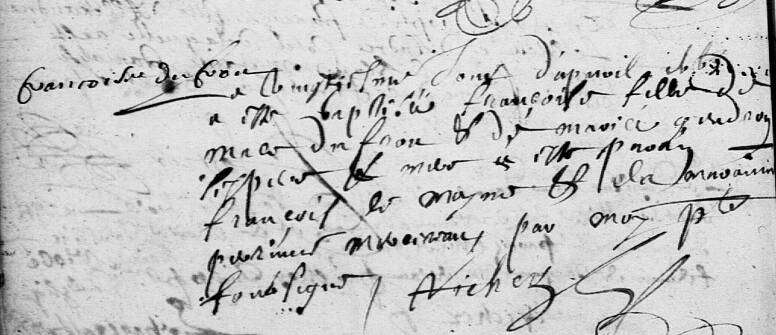 francoise du fron
Le vingtiesme Jour d'apvril 16
a este baptisée françoise fille de
mace du fron & de marie gendron
ses pere & mere a este parain
françois le moyne & la maraine
perinne par moy pbre
soubsigné Richer